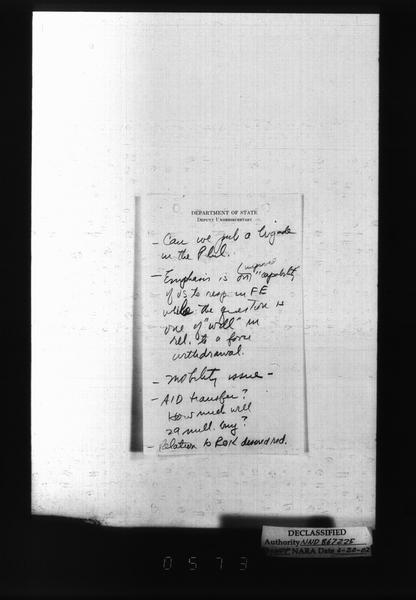 DEPARTMENT OF STATE
DEPUTY UNDERSECRETARY
- Can we put a brigade
in the Phil.
(improved
- Emphasis is on "capability
of US to resp in FE
while the question is
one of "will" in
rel. to a force
withdrawal.
- Mobility issue -
- AID transfer?
How much will
29 mill. buy?
- Relation to ROK desired red.
DECLASSIFIED
Authority NND 867225
NARA Date
0573